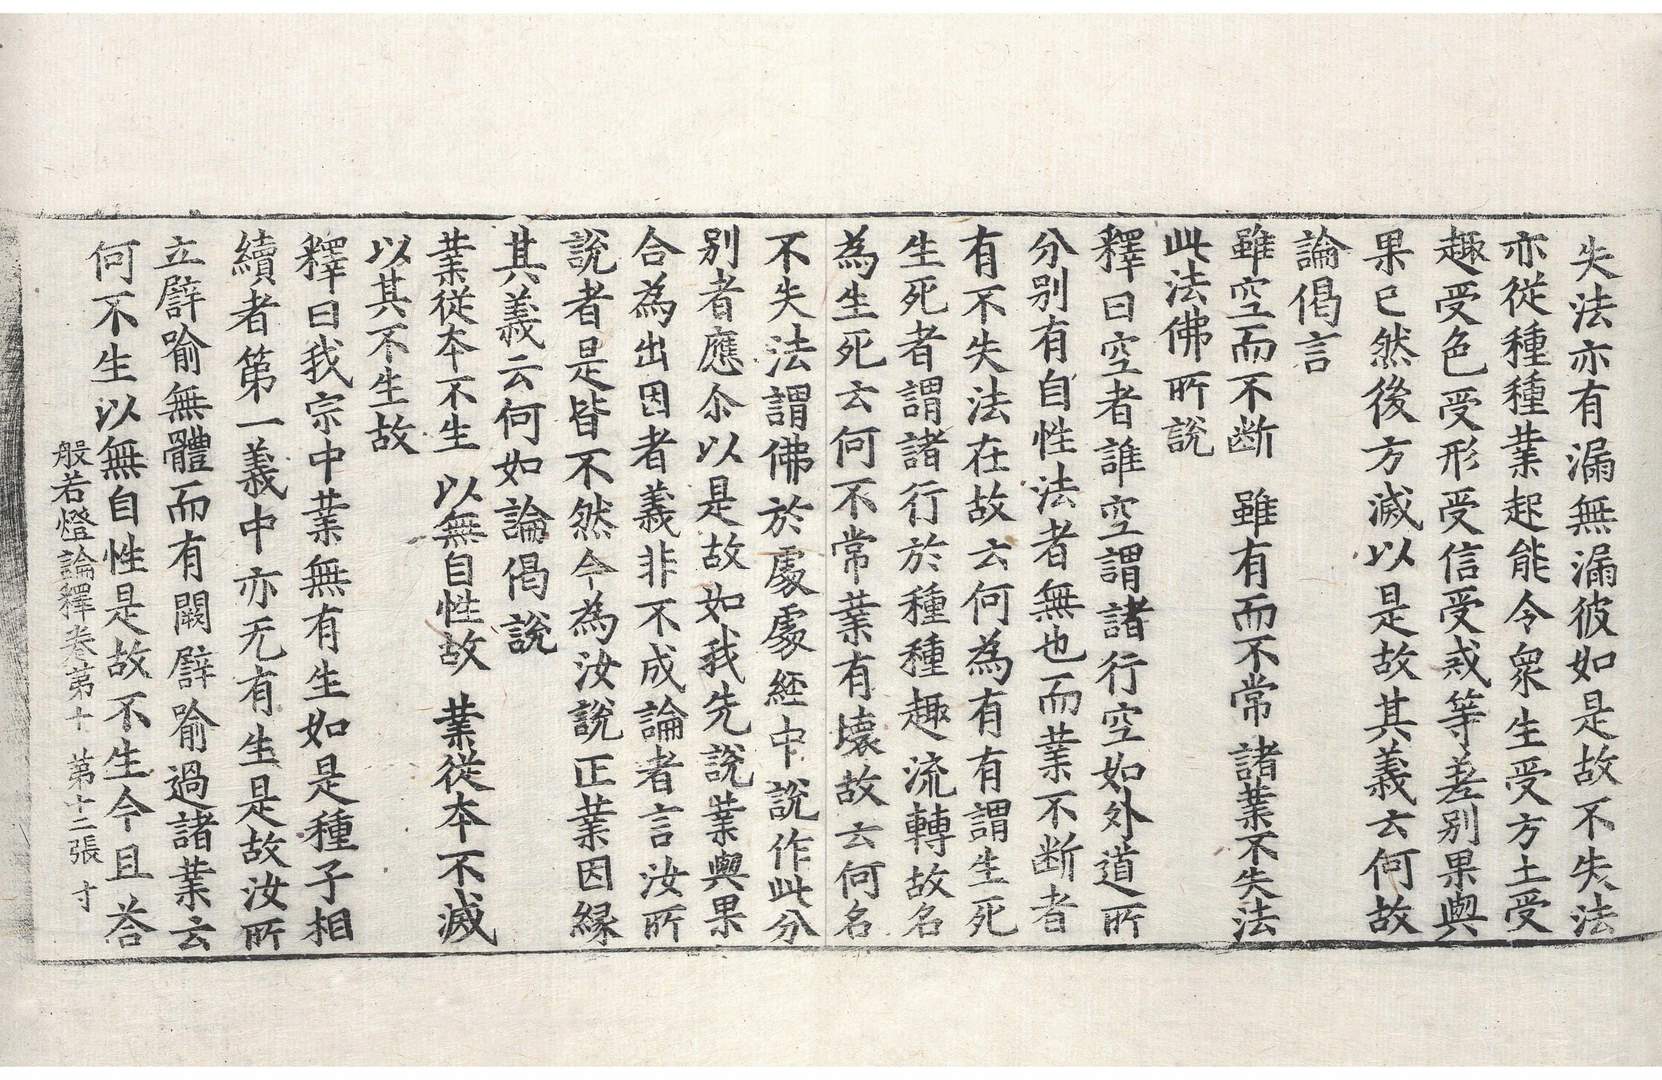 失法亦有漏無漏彼如是故不失法
亦從種種業起能令衆生受方土受
趣受色受形受信受戒等差別果與
果已然後方滅以是故其義云何故
論偈言
雖空而不断 雖有而不常 諸業不失法
此法佛所說
釋曰空者誰空謂諸行空如外道所
分別有自性法者無也而業不断者
有不失法在故云何為有有謂生死
生死者謂諸行於種種趣流轉故名
為生死云何不常業有壞故云何名
不失法謂佛於處處經中說作此分
別者應尒以是故如我先說業與果
合為出因者義非不成論者言汝所
說者是皆不然今為汝說正業因緣
其義云何如論偈說
業從夲不生 以無自性故 業從夲不滅
以其不生故
釋曰我宗中業無有生如是種子相
續者第一義中亦无有生是故汝所
立譬喻無體而有闕譬喻過諸業云
何不生以無自性是故不生今且荅
般若燈論釋卷第十 第十二張 寸